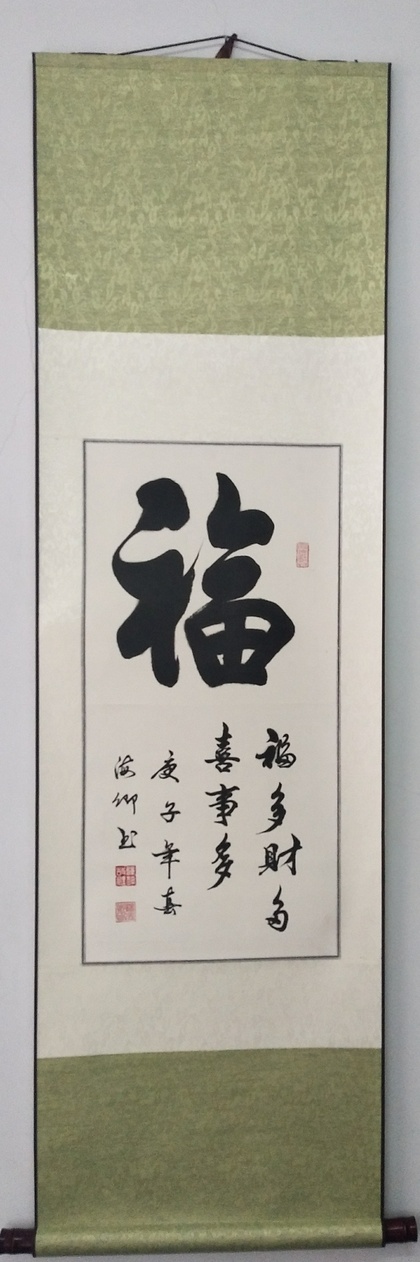 福
福多財多
喜事多
庚子年春
海卿书